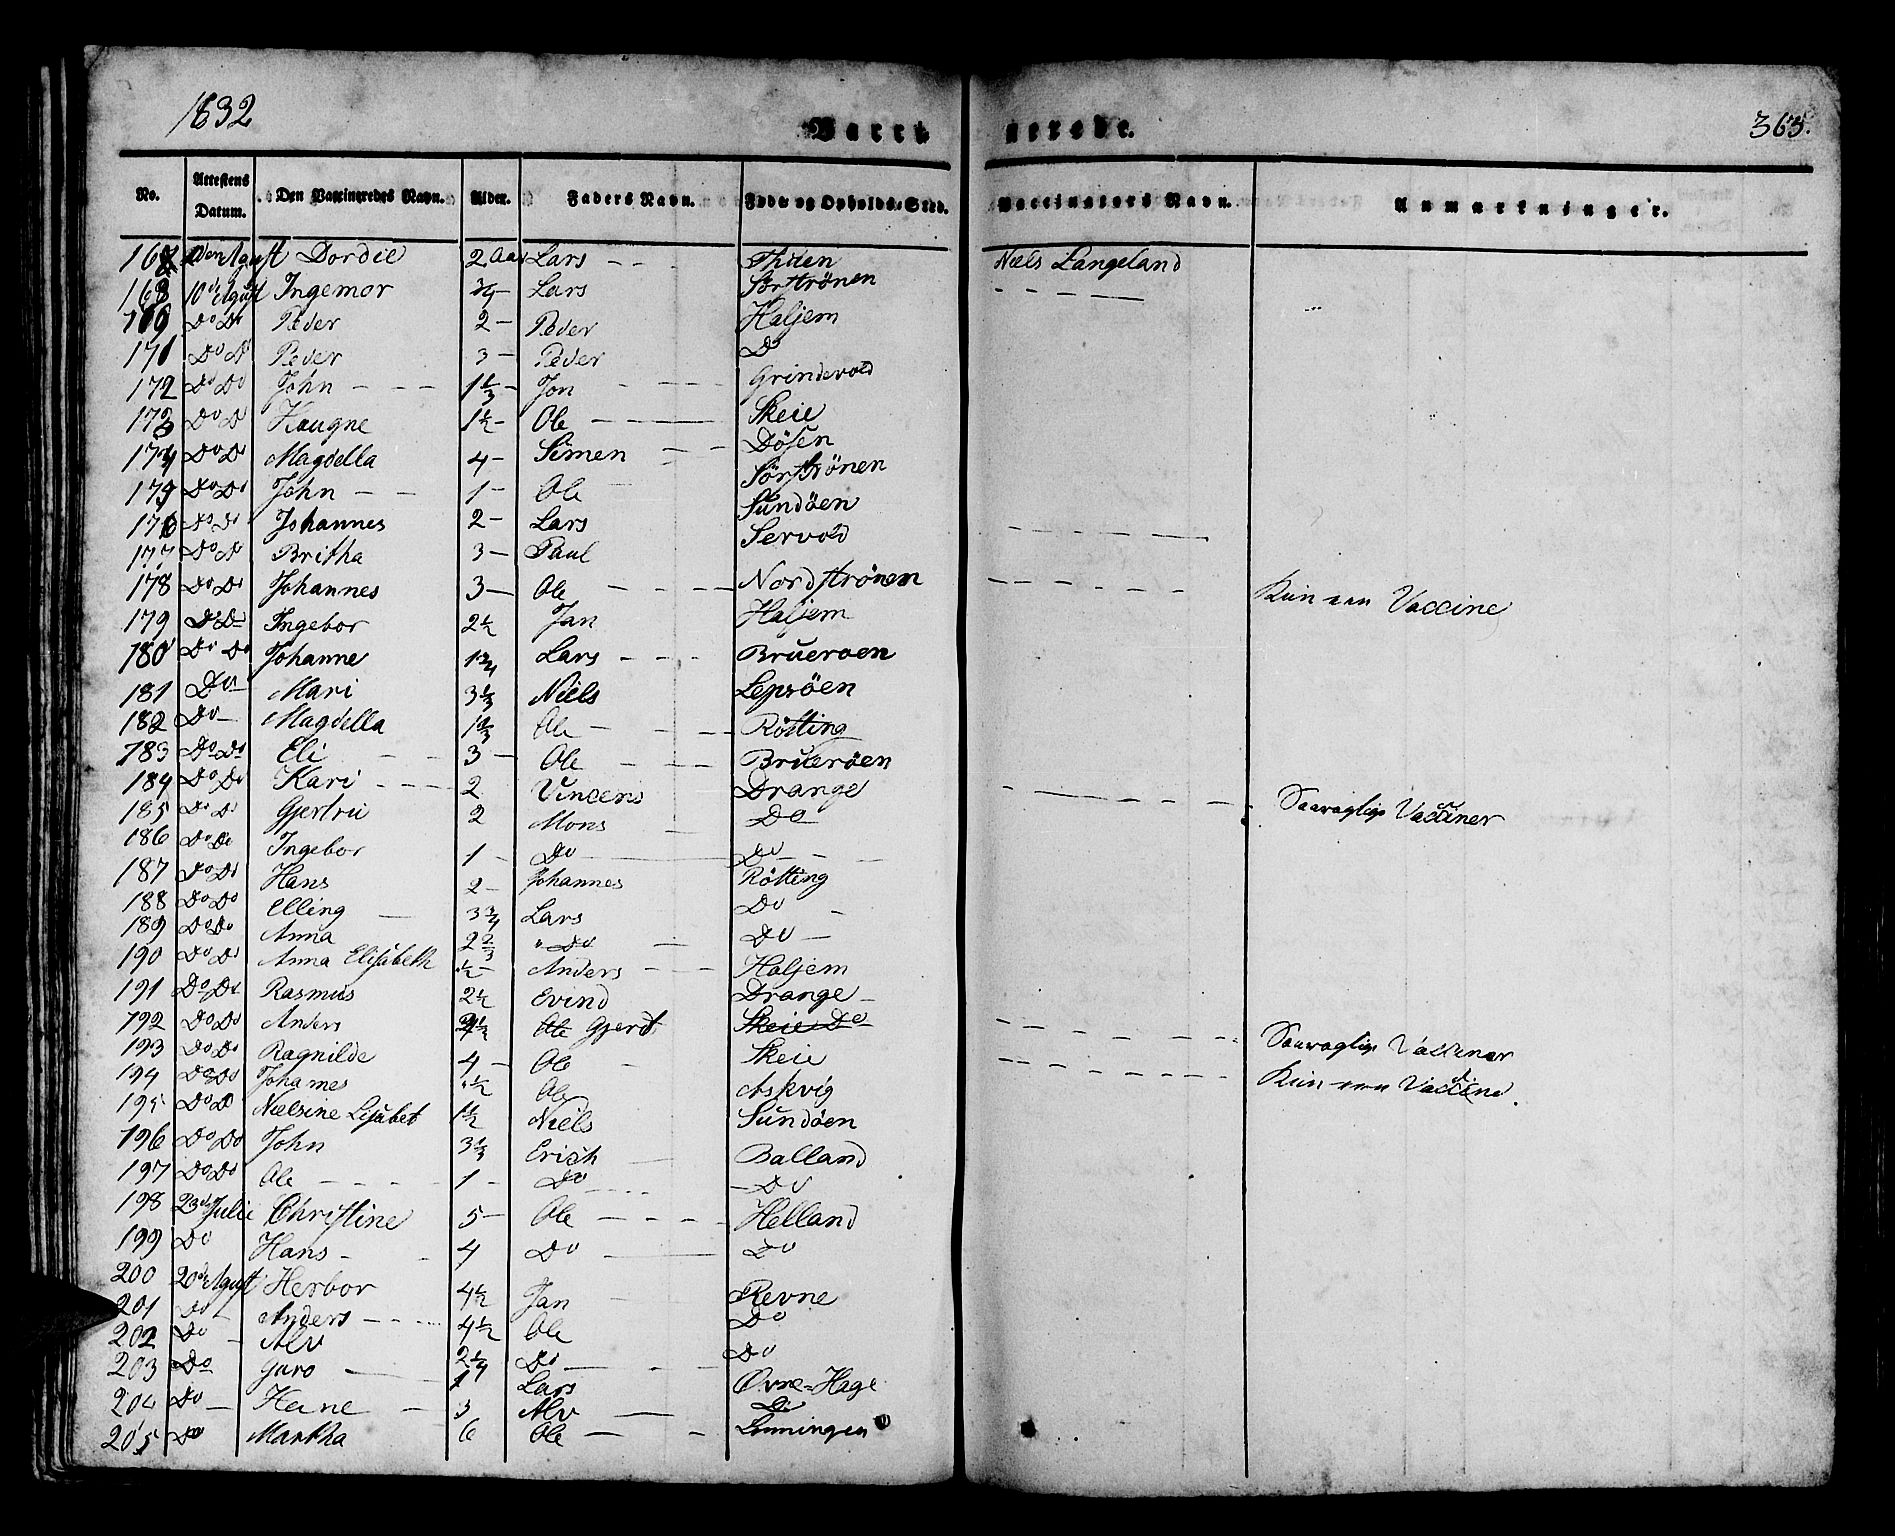 1832 Vacci nerede. 363.
No. Attestens Datum. Den Vaccineredes Navn. Alder. Faders Navn. Føde og Opholds-Sted. Vaccinators Navn. Anmærkninger.
Agust Dordie 2 Aar Lars Niels Langeland
168 10d Agust Ingemor Lars Sørströnen
Do Do Peder 2 Peder Haljem
171 Do Do Peder 3 Peder Do
172 Do Do John 1 1/3 Jon Grindevold
173 Do Do Haugne 1 1/2 Ole Skeie
174 Do Do Magdella 4 Simen Dösen
175 Do Do John 1 Ole Sörströnen
176 Do Do Johannes 2 Lars Sundöen
177 Do Do Britha 3 Paul Servold
178 Do Do Johannes 3 Ole Nordströnen Kun een Vaccine
179 Do Do Ingebor 2 1/2 Jan Haljem
180 Do Do Johanne 1 3/4 Lars Brueroen
181 Do Mari 3 1/3 Niels Lepsöen
182 Do Magdella Ole Rötting
183 Do Do Eli 3 Ole Brueröen
184 Do Do Kari 2 Vincens Drange
185 Do Do Gjertru 2 Mons Do Vacciner
186 Do Do Ingebor 1 Do Do
187 Do Do Hans 2 Johannes Rötting
188 Do Do Elling 3 3/4 Lars Do
189 Do Do Anna 2 2/3 Do Do
190 Do Do Anna Elisabeth 1/2 Anders Haljem
191 Do Do Rasmus 2 1/2 Evind Drange
192 Do Do Anders Ole Gjert Skeie Do
193 Do Do Ragnilde 4 Ole Skeie Vacciner
194 Do Do Johannes 1/2 Ole Askvig Kun een Vaccine.
195 Do Do Nielsine Lisabet 1 1/2 Niels Sundöen
196 Do Do John 3 1/3 Erich Balland
197 Do Do Ole 1 Do Do
198 23d Julie Christine 5 Ole Helland
199 Do Hans 4 Do Do
200 20d Agust Herbor 4 1/2 Jan Revne
201 Do Anders 4 1/2 Ole Do
202 Do Alv 2 1/4 Do Do
203 Do Guro 1 Lars Øvre-Hage
204 Do 3 Alv Do
205 Do Martha 6 Ole